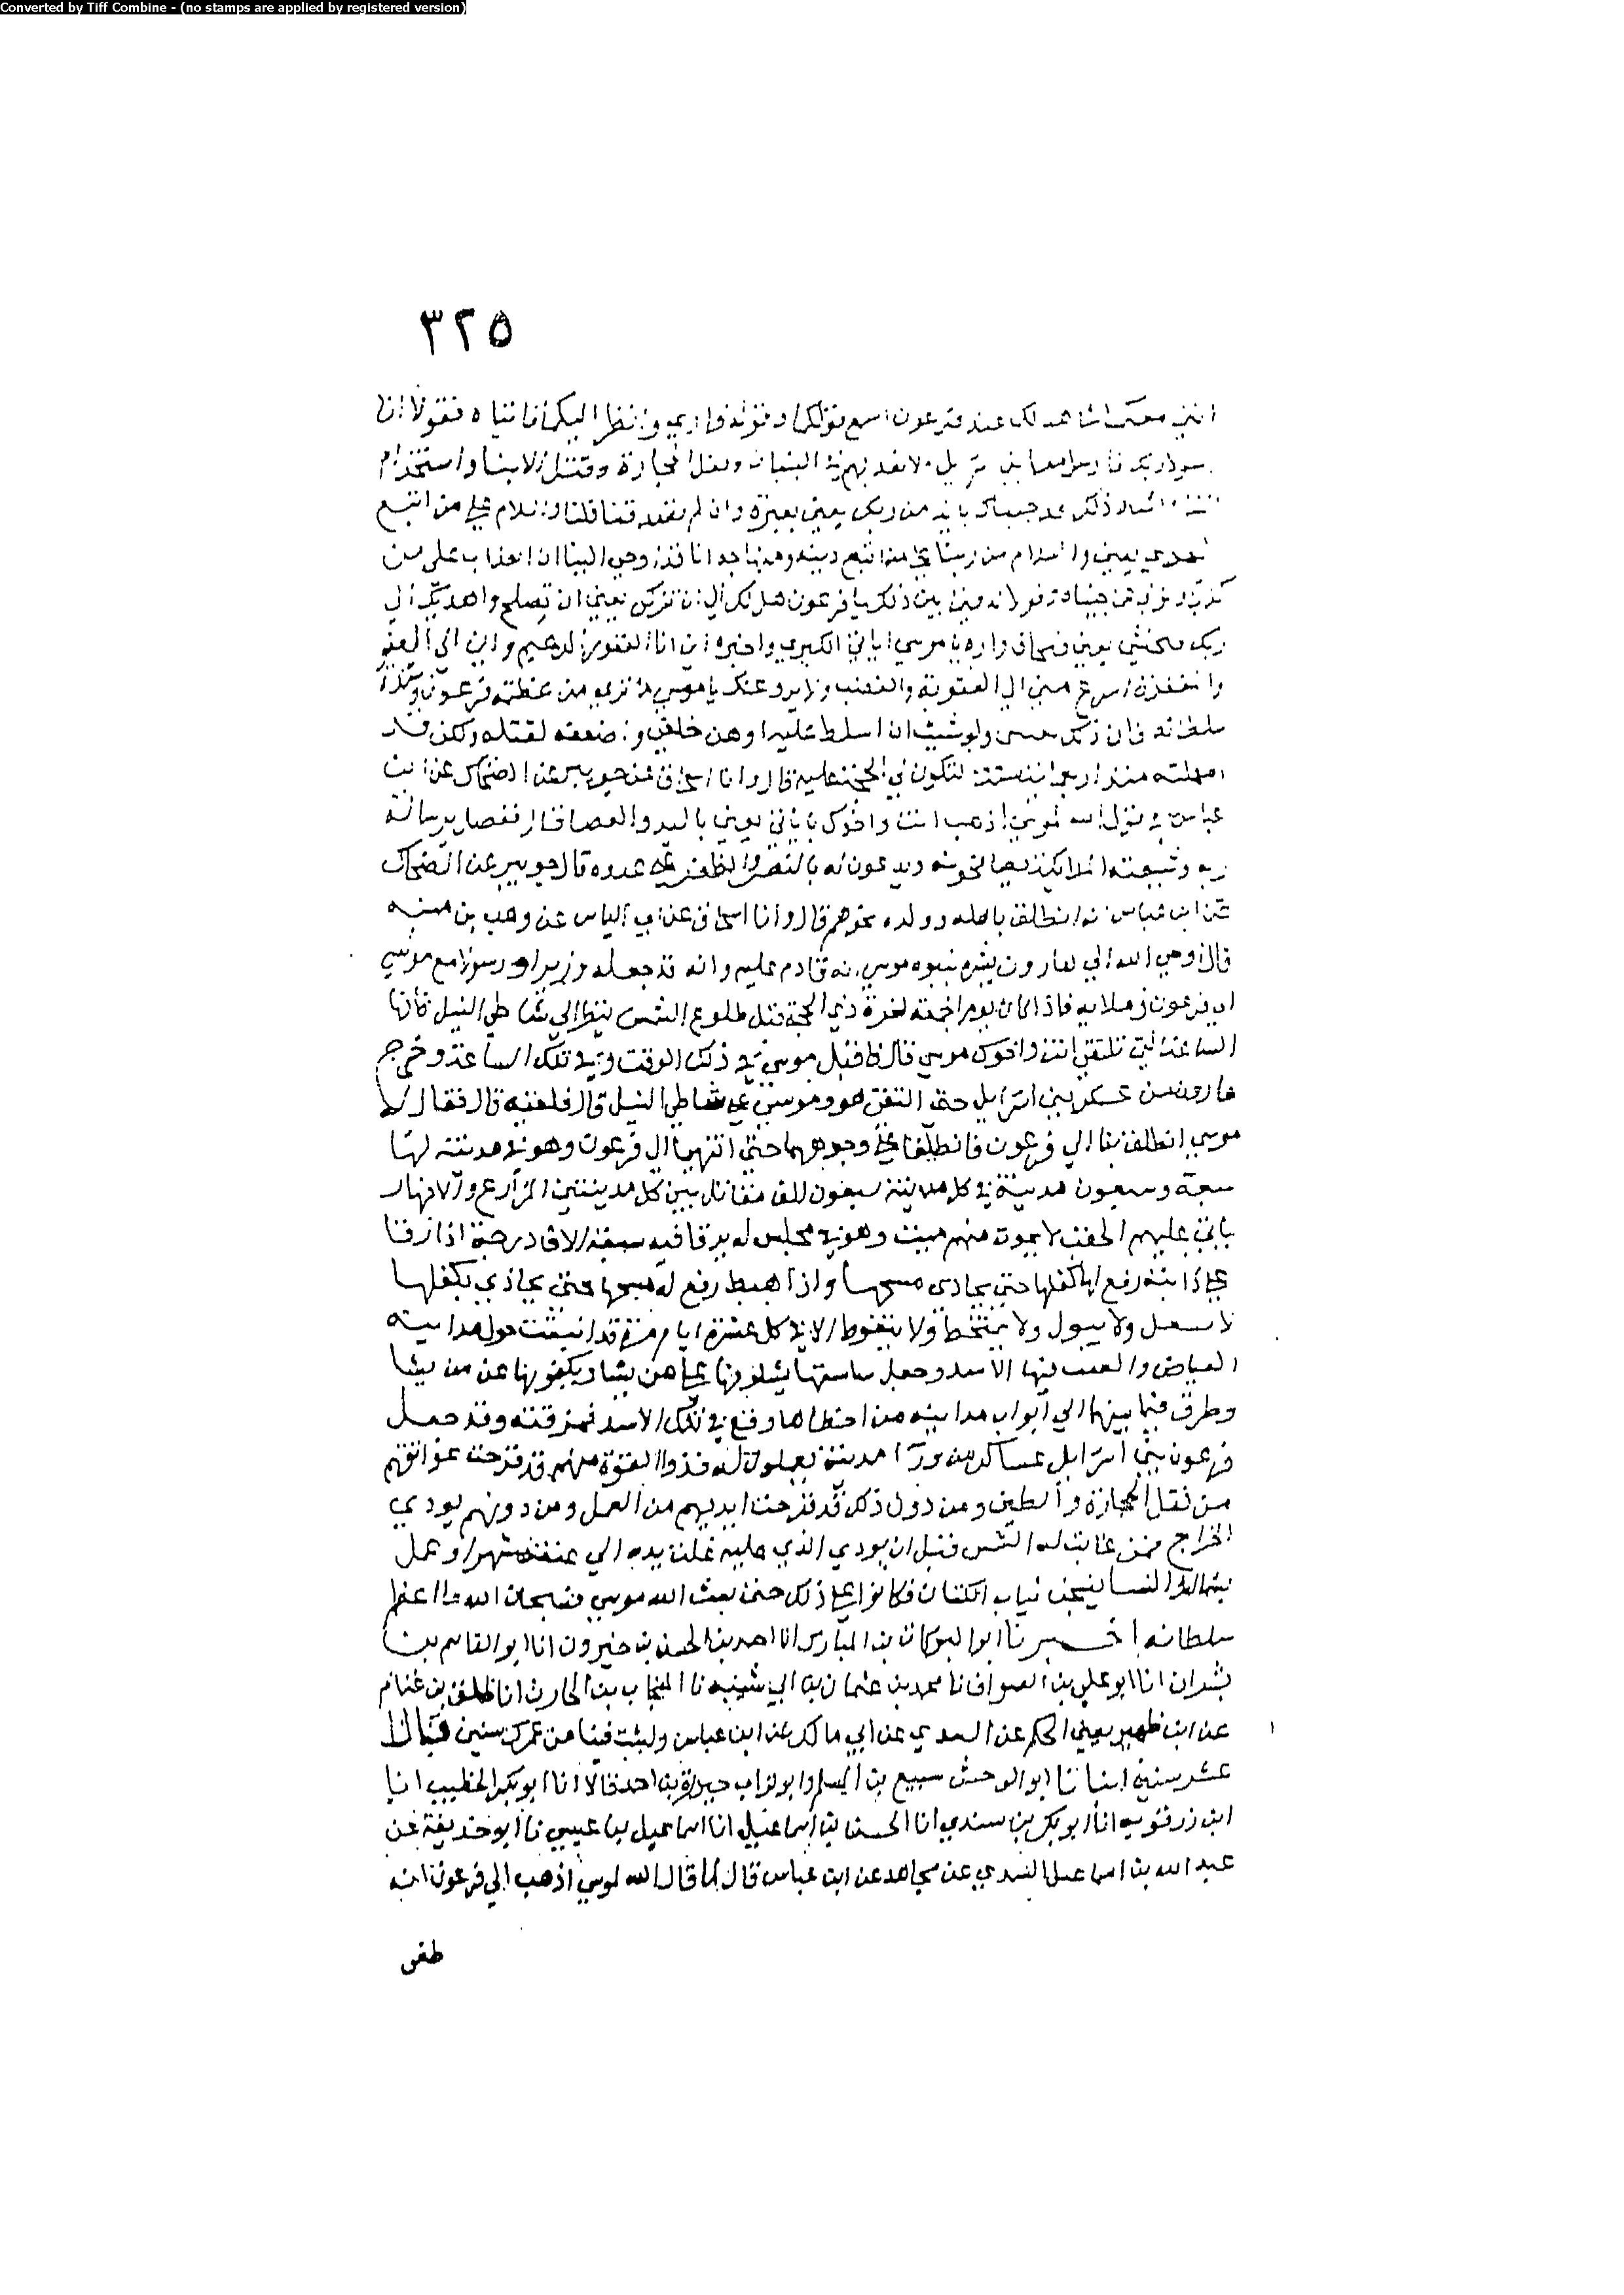 Converted by Tiff Combine - (no stamps are applied by registered version)
٣٢٥
انني معكما شاهد لكما عند فرعون اسمع قولكما وقوله وارى وانظر اليكما فاتياه فقولا انا
رسولا ربك فارسل معنا بني اسرايل ولا تعذبهم في البنيان ونقل الحجارة وقتل الابنا واستخدام
ذلك قد جيناك باية من ربك يعني بعبرة وان لم تصدقنا قتلنا والسلام على من اتبع
الهدى يعني والسلام من ربنا على من اتبع دينه ومنهاجه انا قد اوحي الينا ان العذاب على من
كذب وتولى هل لك الى ان تزكى يعني ان تصلح واهديك الى
ربك فتخشى يعني فتخاف واره يا موسى اياتي الكبرى واخبره اني انا الغفور الرحيم واني الى العفو
والمغفرة اسرع مني الى العقوبة والغضب ولا يروعنك يا موسى ما ترى من عظمة فرعون وشدة
سلطانه فان ذلك ولو شيت ان اسلط عليه اوهن خلقي واضعفه لقتله ولكن قد
امهلته منذ اربع ماية سنة لتكون لي الحجة عليه قال وانا اسحاق عن جويبر عن الضحاك عن ابن
عباس في قول الله لموسى اذهب انت واخوك باياتي يعني باليد والعصا قال ففصل برسالة
ربه وشيعته الملايكة يصافحونه ويدعون له بالنصر والظفر على عدوه قال جويبر عن الضحاك
عن ابن عباس انه انطلق باهله وولده نحوهم قال وانا اسحاق عن ابي الياس عن وهب بن منبه
قال اوحى الله الى هارون يبشره بنبوة موسى انه قادم عليه وانه قد جعله وزيرا ورسولا مع موسى
الى فرعون وملايه فاذا كان يوم الجمعة لغرة ذي الحجة قبل طلوع الشمس فانظر الى شاطي النيل فانها
الساعة التي تلتقي انت واخوك موسى قال فاقبل موسى في ذلك الوقت وفي تلك الساعة وخرج
هارون من عسكر بني اسرايل حتى التقى هو وموسى على شاطي النيل قال فلقيه قال فقال له
موسى انطلق بنا الى فرعون فانطلقا على وجوههما حتى انتهيا الى فرعون وهو في مدينة لها
سبعة وسبعون مدينة في كل مدينة سبعون الف مقاتل بين كل مدينتين المزارع والانهار
ياتي عليهم الحقب لا يموت منهم ميت وهو في مجلس له يرقا فيه سبعة الاف درجة اذا رقا
على دابته رفع لها كفلها حتى يحاذى منسجها واذا هبط رفع له منسجها حتى يحاذي بكفلها
لا يسعل ولا يبول ولا يمتخط ولا يتغوط الا في كل عشرة ايام مرة قد انبتت حول مداينه
الغياض والقيت فيها الاسد وجعل ساستها يشلونها على من يشا ويكفونها عن من يشا
وطرق فيما بينها الى ابواب مداينه من اخطاها وقع في تلك الاسد فمزقته وقد جعل
فرعون بني اسرايل عساكر من ورآ مدينة يعملون له فذوا القوة منهم قد قرحت عواتقهم
من نقل الحجارة والطين ومن دون ذلك قد قرحت ايديهم من العمل ومن دونهم يودي
الخراج فمن غابت له الشمس قبل ان يودي الذي عليه غلت يده الى عنقه شهرا وعمل
النسا ينسجن ثياب الكتان فكانوا على ذلك حتى بعث الله موسى فسبحان الله ما اعظم
سلطانه اخبرنا ابو البركات بن المبارك انا احمد بن الحسن بن خيرون انا ابو القاسم بن
بشران انا ابو علي بن الصواف نا محمد بن عثمان بن ابي شيبه نا المنجاب بن الحارث انا طلق بن غنام
عن ابن ظهير يعني الحكم عن السدي عن ابي مالك عن ابن عباس ولبثت فينا من عمرك سنين قال
عشر سنين انبانا ابو الوحش سبيع بن المسلم وابو تراب حيدرة بن احمد قالا انا ابو بكر الخطيب انا
ابن زرقويه انا ابو بكر بن سندي انا الحسن بن اسماعيل انا اسماعيل بن عيسى نا ابو حذيفة عن
عبد الله بن اسماعيل السدي عن مجاهد عن ابن عباس قال لما قال الله لموسى اذهب الى فرعون انه
طغى